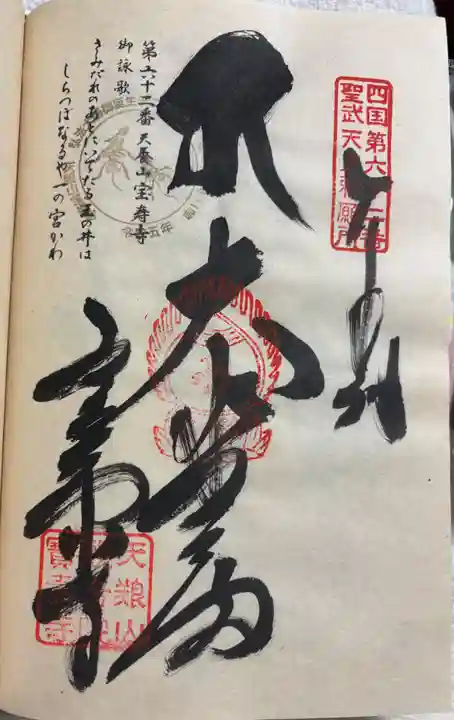 四国第六十二番
聖武天皇勅願所
奉納
大
宝寿寺
第六十二番 天養山 宝寿寺
御詠歌
さみだれのあとにいでたる玉の井は
しらつぼなるや一の宮かわ
天養山
寶壽寺